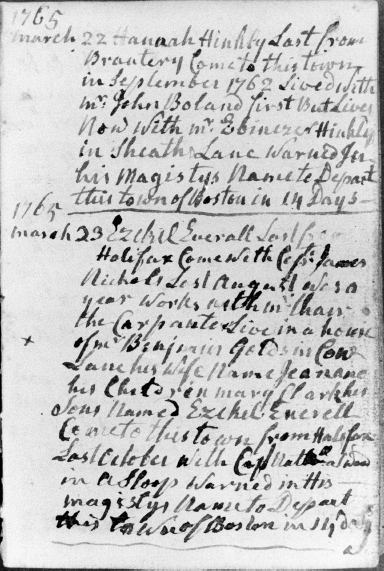 1765
march 22 Hannah Hinkly Last from
Brantery Come to this town
in September 1762 Lived with
mr John Boland first But Lives
Now With mr Ebinezer Hinkly
in Sheaths Lane Warned In
his Magistys Name to Depart
this town of Boston in 14 Days
1765
march 23 Ezekil Everall Last from
Halifax Come With Capt James
Nichols Last August was a
year Works with mr
the Carpenter Live in a house
of mr Benjamin Golds in Cow
Lane his Wife Name Jeanano
his Children mary Clark his
Sons Named Ezekil Everell
Come to this town from Halifax
Last October With Capt
in a Sloop Warned in His
magistys Name to Depart
this town of Boston in 14 day